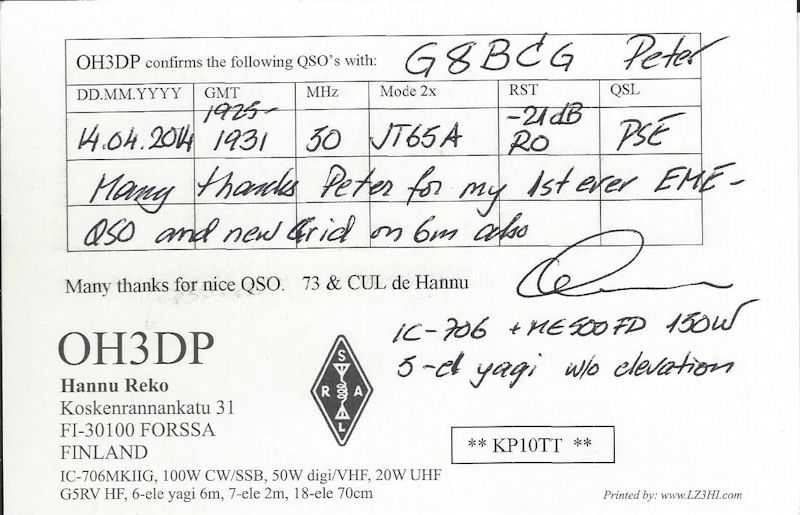 OH3DP confirms the following QSO's with: G8BCG Peter
DD.MM.YYYY GMT MHz Mode 2x RST QSL
1925- -21dB
14.04.2014 1931 50 JT65A RO PSE
Many thanks Peter for my 1st ever EME-
QSO and new Grid on 6m also
Many thanks for nice QSO. 73 & CUL de Hannu
IC-706 + ME500FD 150W
5-el yagi w/o elevation
OH3DP
Hannu Reko
Koskenrannankatu 31
FI-30100 FORSSA
FINLAND
S
R A
L
** KP10TT **
IC-706MKIIG, 100W CW/SSB, 50W digi/VHF, 20W UHF
G5RV HF, 6-ele yagi 6m, 7-ele 2m, 18-ele 70cm
Printed by: www.LZ3HI.com